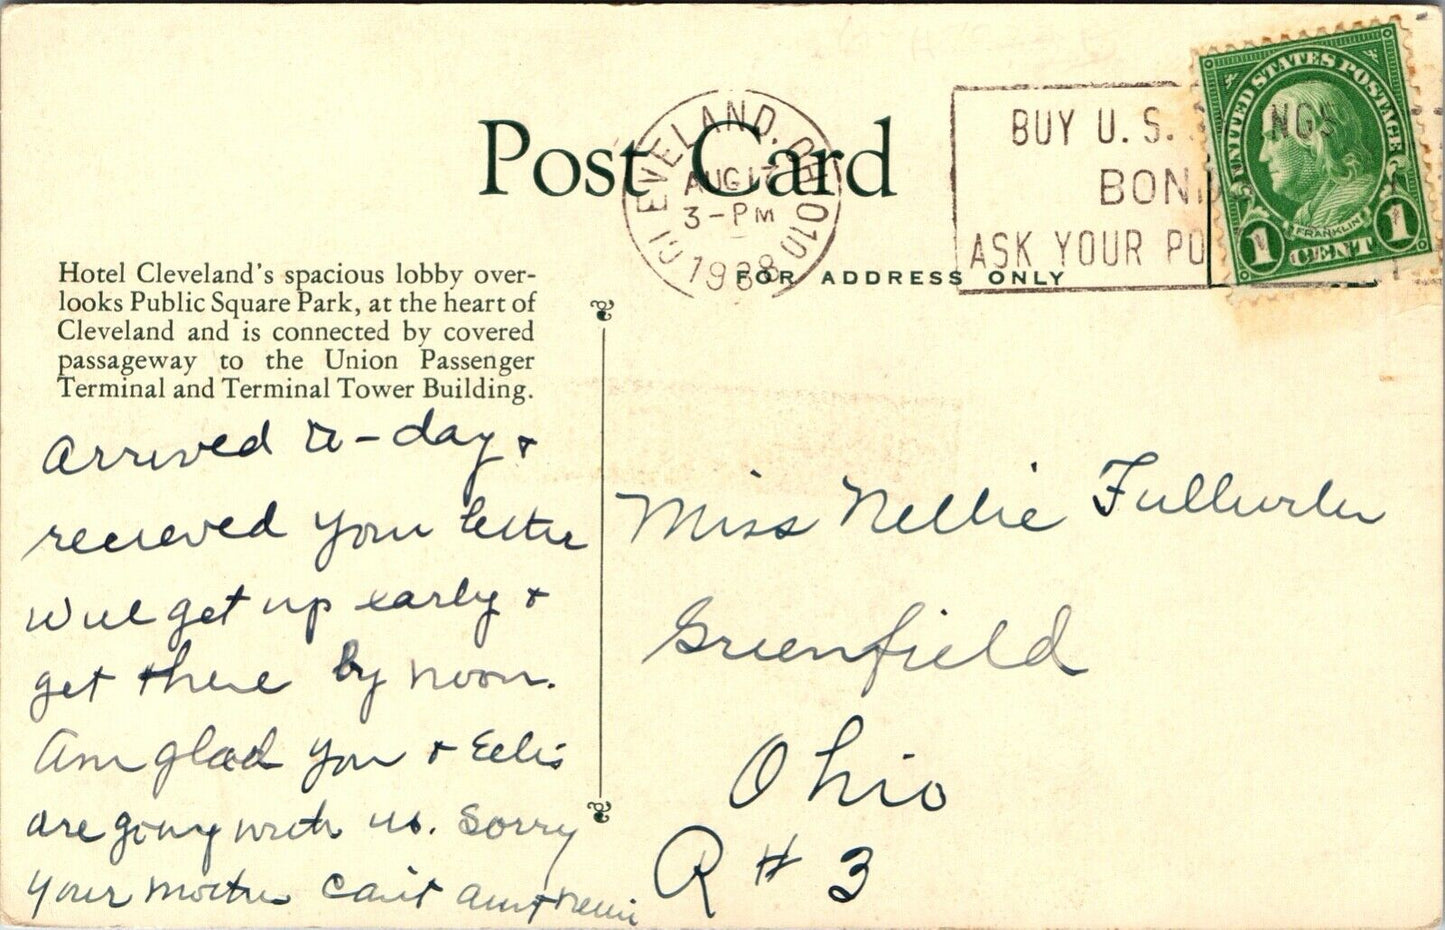 Post Card
CLEVELAND, OHIO
AUG 17
3-PM
1938
BUY U.S. NGS
BON
ASK YOUR PO
UNITED STATES POSTAGE
FRANKLIN
1 CENT 1
FOR ADDRESS ONLY
Hotel Cleveland's spacious lobby over-
looks Public Square Park, at the heart of
Cleveland and is connected by covered
passageway to the Union Passenger
Terminal and Terminal Tower Building.
Arrived to-day &
recieved your letter
Will get up early &
get there by noon.
Am glad you &
are going with us. Sorry
your mother can't
Miss Nellie
Greenfield
Ohio
R # 3